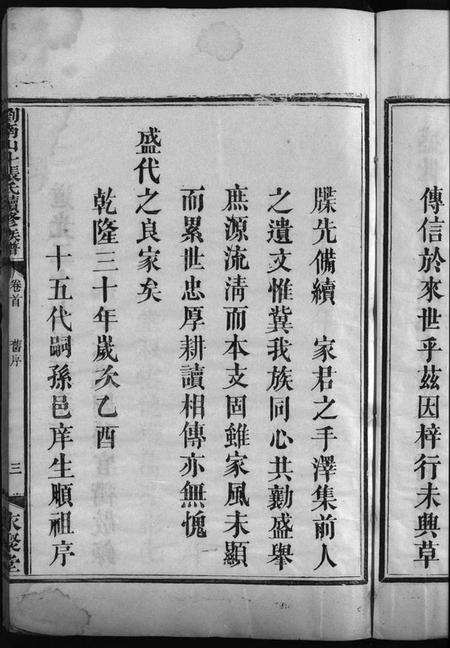 傳信於來世乎茲因梓行未興草
牒先備續　家君之手澤集前人
之遺文惟冀我族同心共勷盛舉
庶源流清而本支固雖家風未顯
而累世忠厚耕讀相傳亦無愧
盛代之良家矣
乾隆三十年歲次乙酉
十五代嗣孫邑庠生順祖序
山上張氏續修族譜
卷首
舊序
三
永聚堂